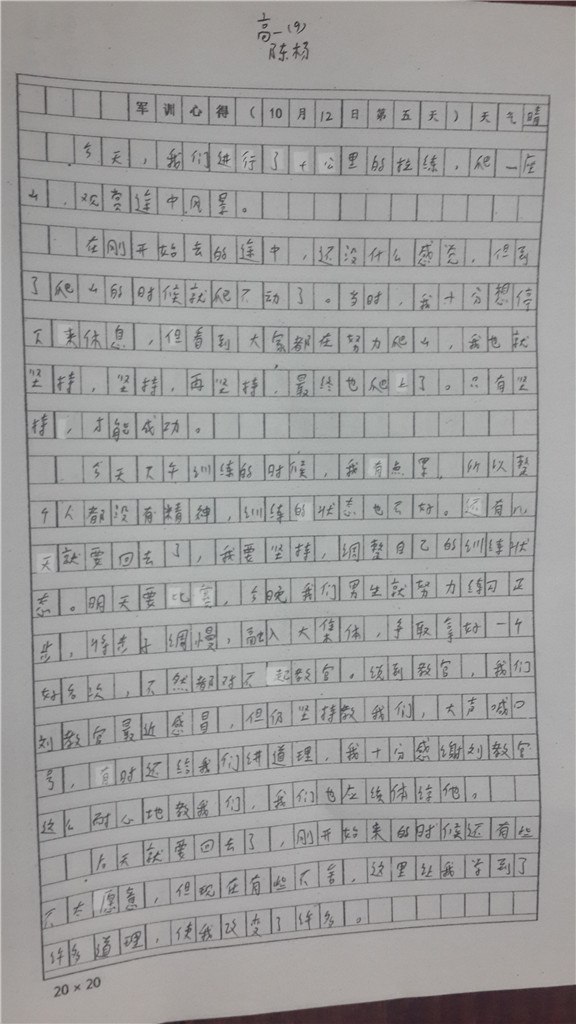 高一(9)
陈杨
军训心得（10月12日第五天）天气晴
今天，我们进行了十公里的拉练，爬一座
山，观赏途中风景。
在刚开始去的途中，还没什么感觉，但到
了爬山的时候就爬不动了。当时，我十分想停
下来休息，但看到大家都在努力爬山，我也就
坚持，坚持，再坚持，最终也爬上了。只有坚
持，才能成功。
今天下午训练的时候，我有点累，所以整
个人都没有精神，训练的状态也不好。还有几
天就要回去了，我要坚持，调整自己的训练状
态。明天要比赛，今晚我们男生就努力练习正
步，将步子调慢，融入大集体，争取拿好一个
好名次，不然都对不起教官。谈到教官，我们
刘教官最近感冒，但仍坚持教我们，大声喊口
号，有时还给我们讲道理，我十分感谢刘教官
这么耐心地教我们，我们也应该体谅他。
后天就要回去了，刚开始来的时候还有些
不太愿意，但现在有些不舍，这里让我学到了
许多道理，使我改变了许多。
20×20